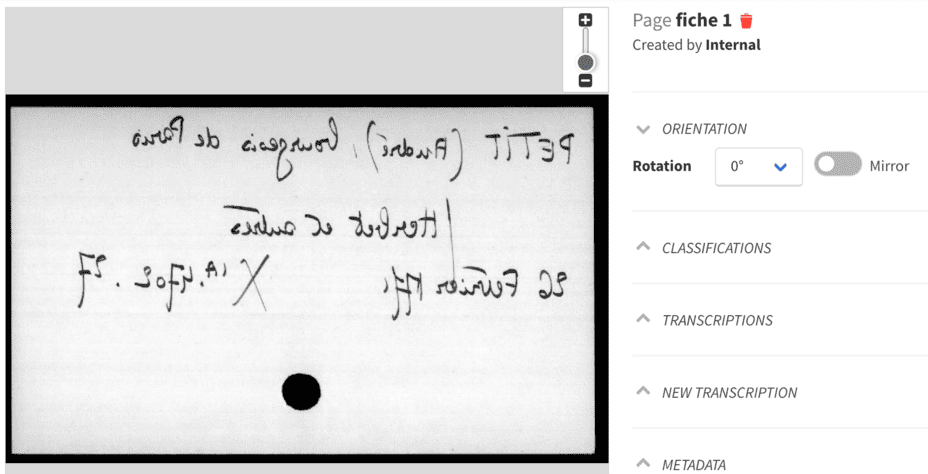 PETIT (André), bourgeois de Paris
/ Herbet et autres
26 Février 1771 X 1A. 4702. 27
Page fiche 1
Created by Internal
ORIENTATION
Rotation 0° Mirror
CLASSIFICATIONS
TRANSCRIPTIONS
NEW TRANSCRIPTION
METADATA